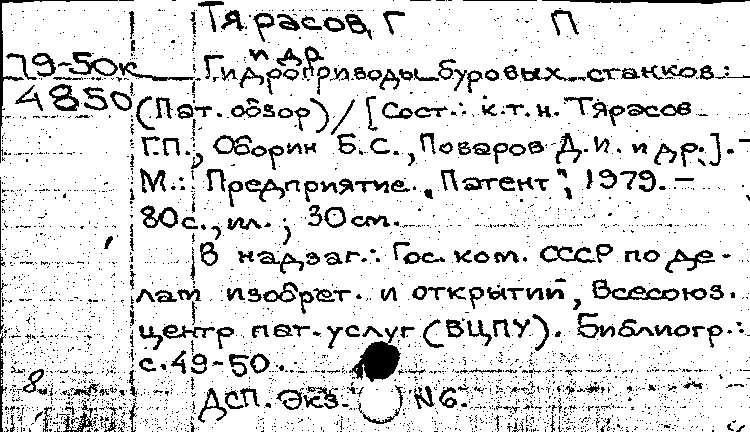 Тярасов, Г П
и др
79-50к Гидроприводы буровых станков:
4850 (Пат. обзор) / [Сост.: к.т.н. Тярасов
Г.П., Оборин Б.С., Поваров Д.И. и др.]. –
М.: Предприятие „Патент", 1979. –
80с., ил.; 30см.
В надзаг.: Гос. ком. СССР по де-
лам изобрет. и открытий, Всесоюз.
центр пат. услуг (ВЦПУ). Библиогр.:
с.49-50.
8.
ДСП. Экз. N6.